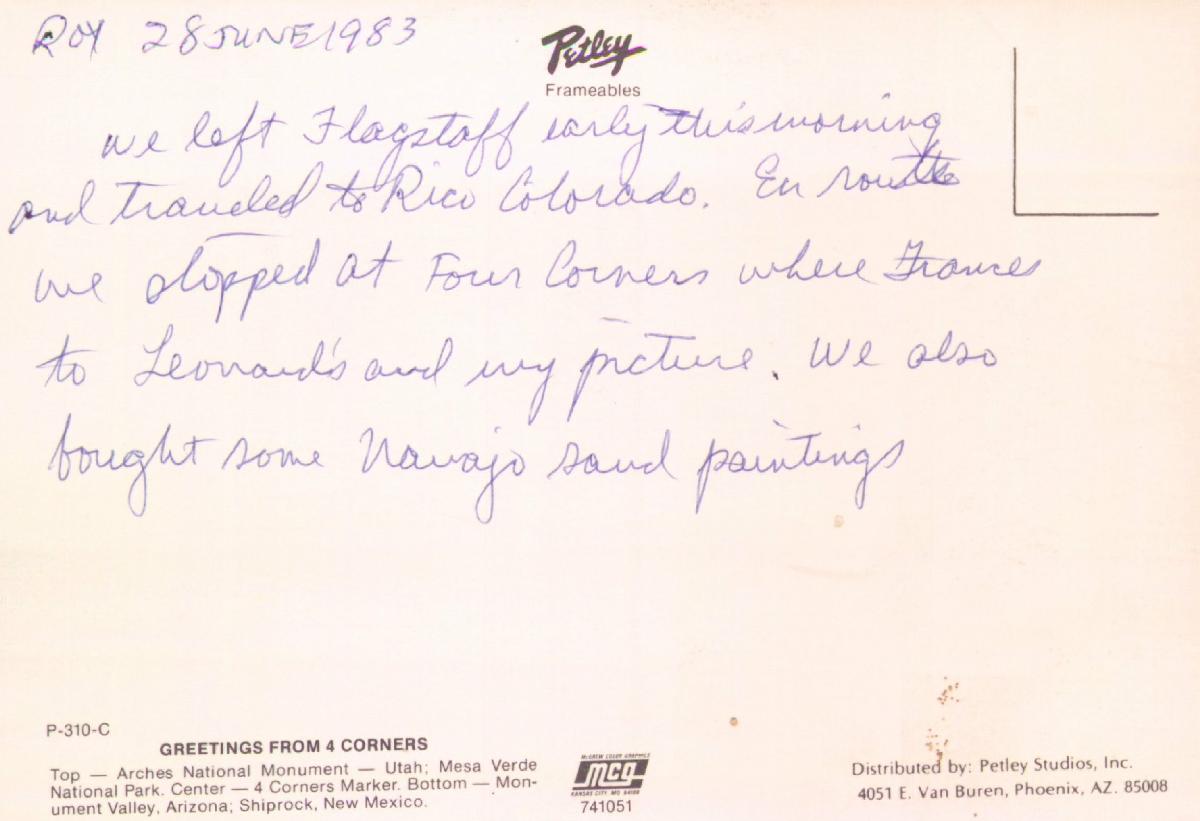 ROY 28 JUNE 1983
Petley
Frameables
we left Flagstaff early this morning
and traveled to Rico Colorado. En route
we stopped at Four Corners where Frances
to Leonard's and my picture. We also
bought some Navajo sand paintings
P-310-C
GREETINGS FROM 4 CORNERS
Top — Arches National Monument — Utah; Mesa Verde
National Park. Center — 4 Corners Marker. Bottom — Mon-
ument Valley, Arizona; Shiprock, New Mexico.
McGREW COLOR GRAPHICS
MCG
KANSAS CITY, MO 64108
741051
Distributed by: Petley Studios, Inc.
4051 E. Van Buren, Phoenix, AZ. 85008